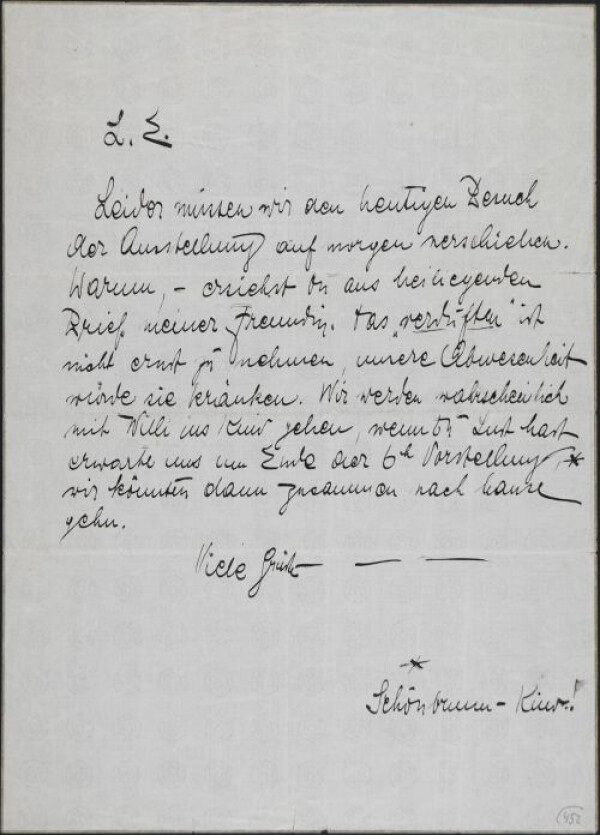 L. E.
Leider müssen wir den heutigen Besuch
der Ausstellung auf morgen verschieben.
Warum, – ersiehst Du aus beiliegenden
Brief meiner Freundin. Das „verduften" ist
nicht ernst zu nehmen, unsere Abwesenheit
würde sie kränken. Wir werden wahrscheinlich
mit Willi ins Kino gehen, wenn Du Lust hast
erwarte uns um Ende der 6h Vorstellung, *
wir könnten dann zusammen nach hause
gehn.
Viele Grüße — —
*
Schönbrunn – Kino!
452